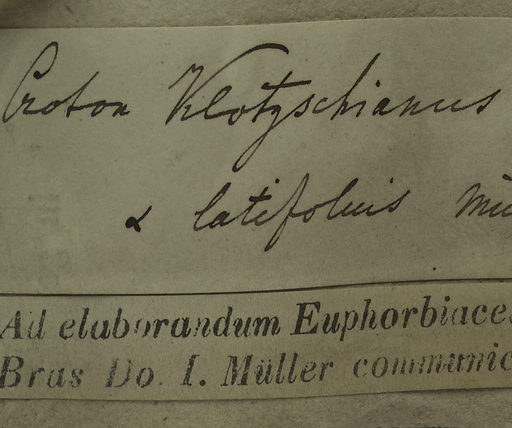 Croton Klotzschianus
α latifolius Mü
Ad elaborandum Euphorbiace
Bras Do. I. Müller communic